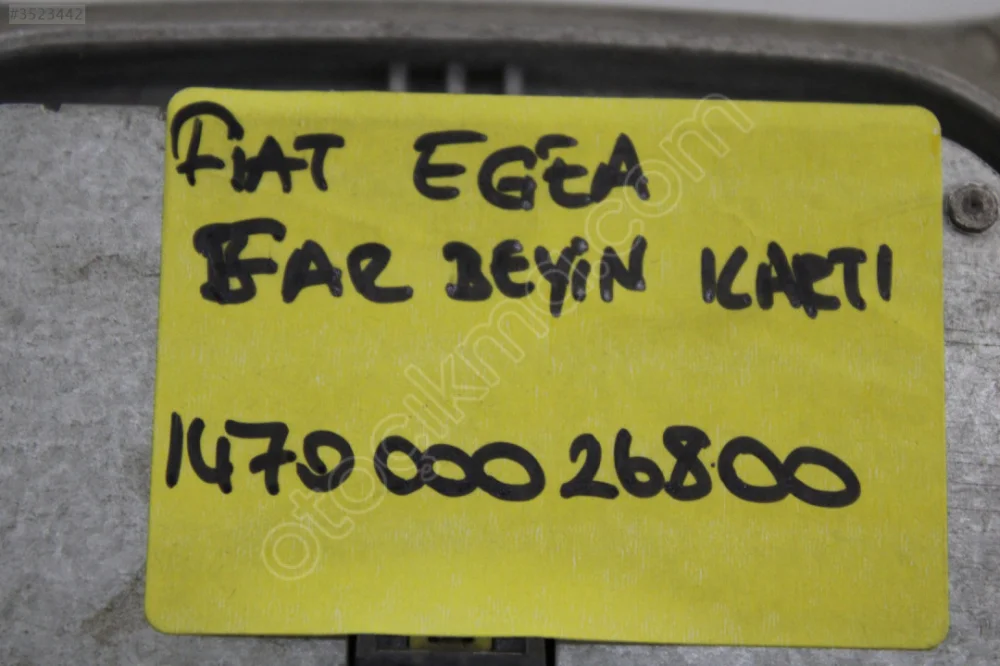 #3523442
FIAT EGEA
FAR BEYİN KARTI
1470000026800
otocikma.com